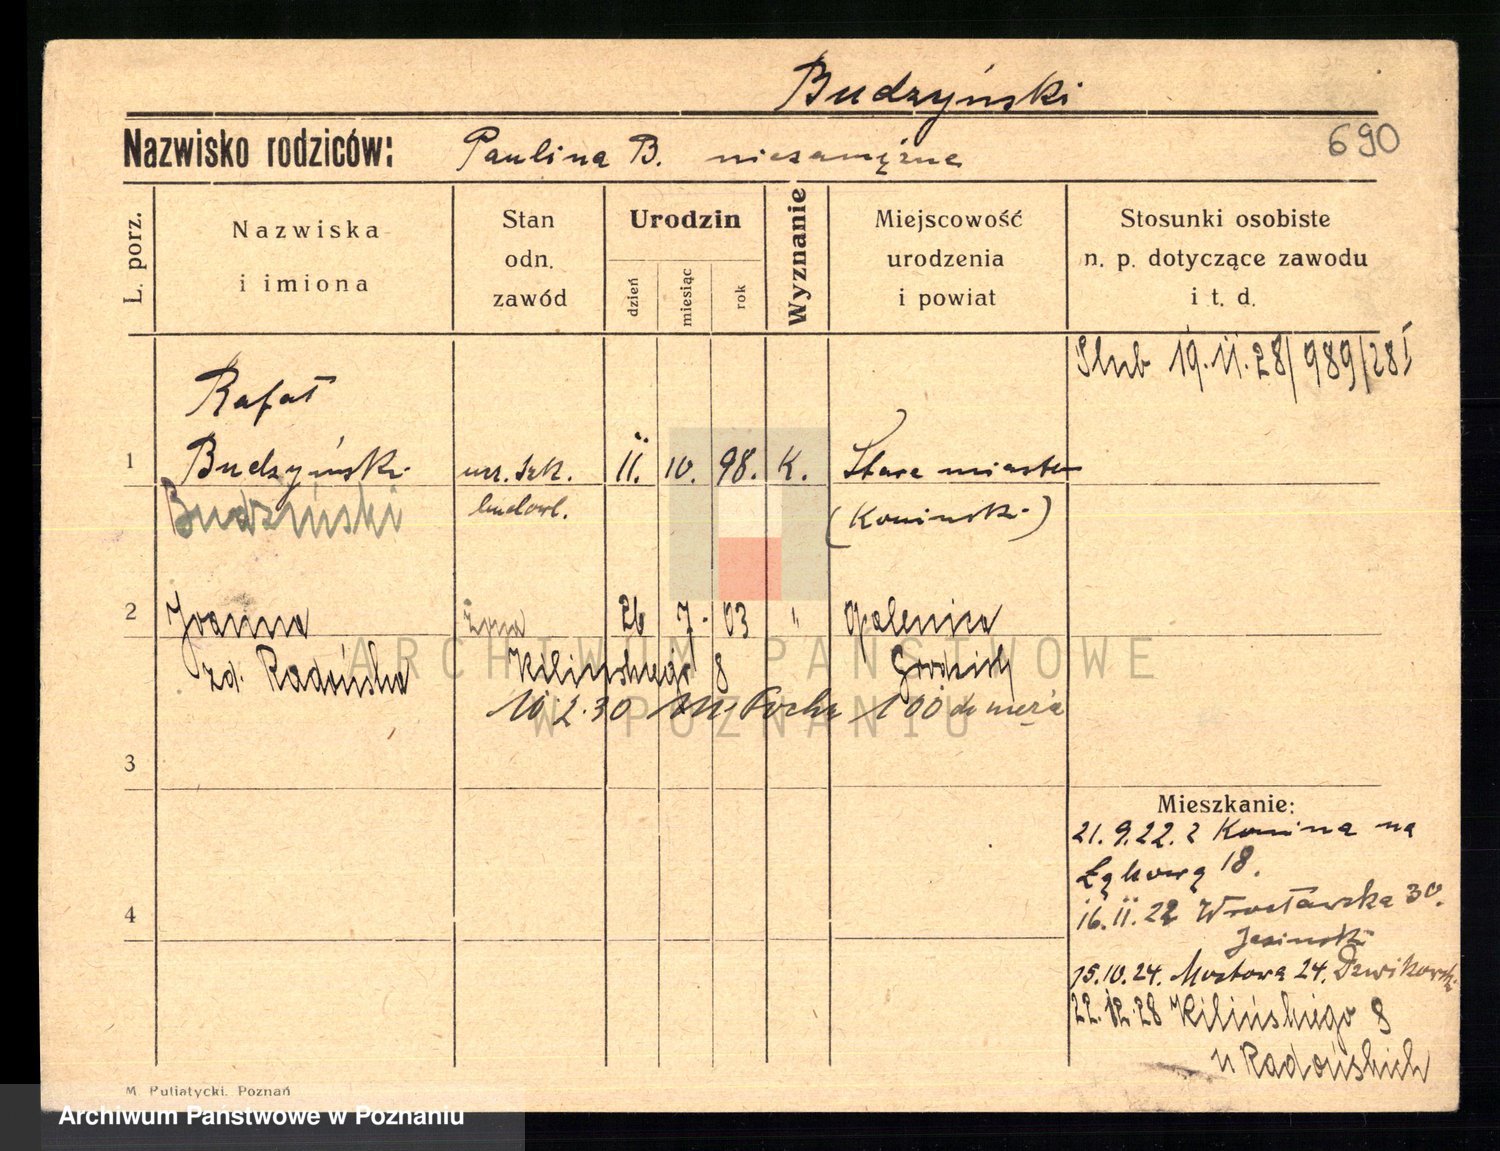 Budzyński
Nazwisko rodziców: Paulina B. niezamężna
690
L. porz.
Nazwiska i imiona
Stan odn. zawód
Urodzin
dzień miesiąc rok
Wyznanie
Miejscowość urodzenia i powiat
Stosunki osobiste n. p. dotyczące zawodu i t. d.
Ślub 19.11.28/989/28 I
Rafał
1 Budzyński ucz. szk. 11. 10. 98. K. Stare miasto
Budziński budowl. (Konińsk.)
2 Joanna żona 26 7. 03 " Galenice
zd. Radońska Kilińskiego 8 Grodzisk
10.2.30 100 do męża
3
Mieszkanie:
21.9.22. z Konina na
Łąkową 18.
4
16.11.22 Wrocławska 30.
Jasińsk
15.10.24. Mostowa 24. Dzwikowsk.
22.12.28 Kilińskiego 8
u Radońskich
M. Putiatycki. Poznań
ARCHIWUM PAŃSTWOWE
W POZNANIU
Archiwum Państwowe w Poznaniu